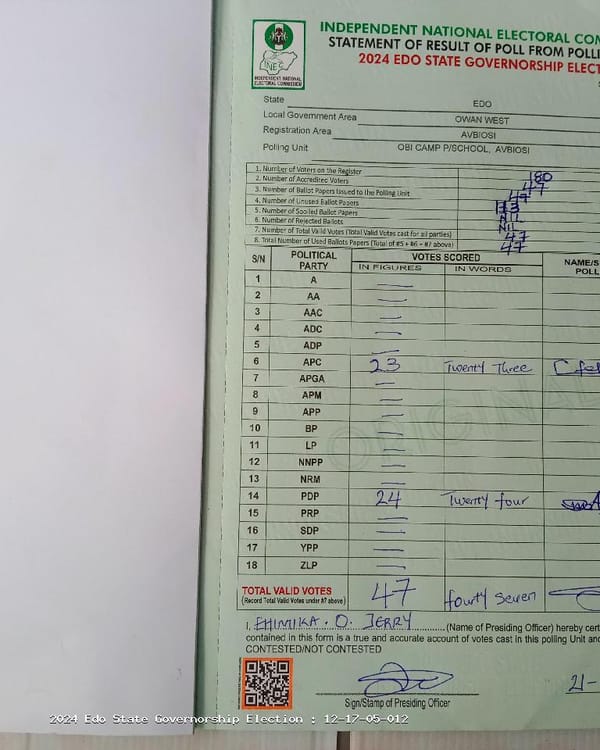 INDEPENDENT NATIONAL ELECTORAL COM
STATEMENT OF RESULT OF POLL FROM POLLI
2024 EDO STATE GOVERNORSHIP ELECT
INEC
INDEPENDENT NATIONAL
ELECTORAL COMMISSION
State EDO
Local Government Area OWAN WEST
Registration Area AVBIOSI
Polling Unit OBI CAMP P/SCHOOL, AVBIOSI
1. Number of Voters on the Register 180
2. Number of Accredited Voters 47
3. Number of Ballot Papers Issued to the Polling Unit
4. Number of Unused Ballot Papers 133
5. Number of Spoiled Ballot Papers NIL
6. Number of Rejected Ballots NIL
7. Number of Total Valid Votes (Total Valid Votes cast for all parties) 47
8. Total Number of Used Ballots Papers (Total of #5 + #6 + #7 above) 47
S/N POLITICAL PARTY VOTES SCORED NAME/S
IN FIGURES IN WORDS POLL
1 A —
2 AA —
3 AAC —
4 ADC —
5 ADP —
6 APC 23 Twenty Three
7 APGA —
8 APM —
9 APP —
10 BP —
11 LP —
12 NNPP —
13 NRM —
14 PDP 24 Twenty four
15 PRP —
16 SDP —
17 YPP —
18 ZLP —
ORIGINAL
TOTAL VALID VOTES 47 fourty Seven
(Record Total Valid Votes under #7 above)
I, EHIMIKA . O. JERRY (Name of Presiding Officer) hereby cert
contained in this form is a true and accurate account of votes cast in this polling Unit and
CONTESTED/NOT CONTESTED
21-
Sign/Stamp of Presiding Officer
2024 Edo State Governorship Election : 12-17-05-012